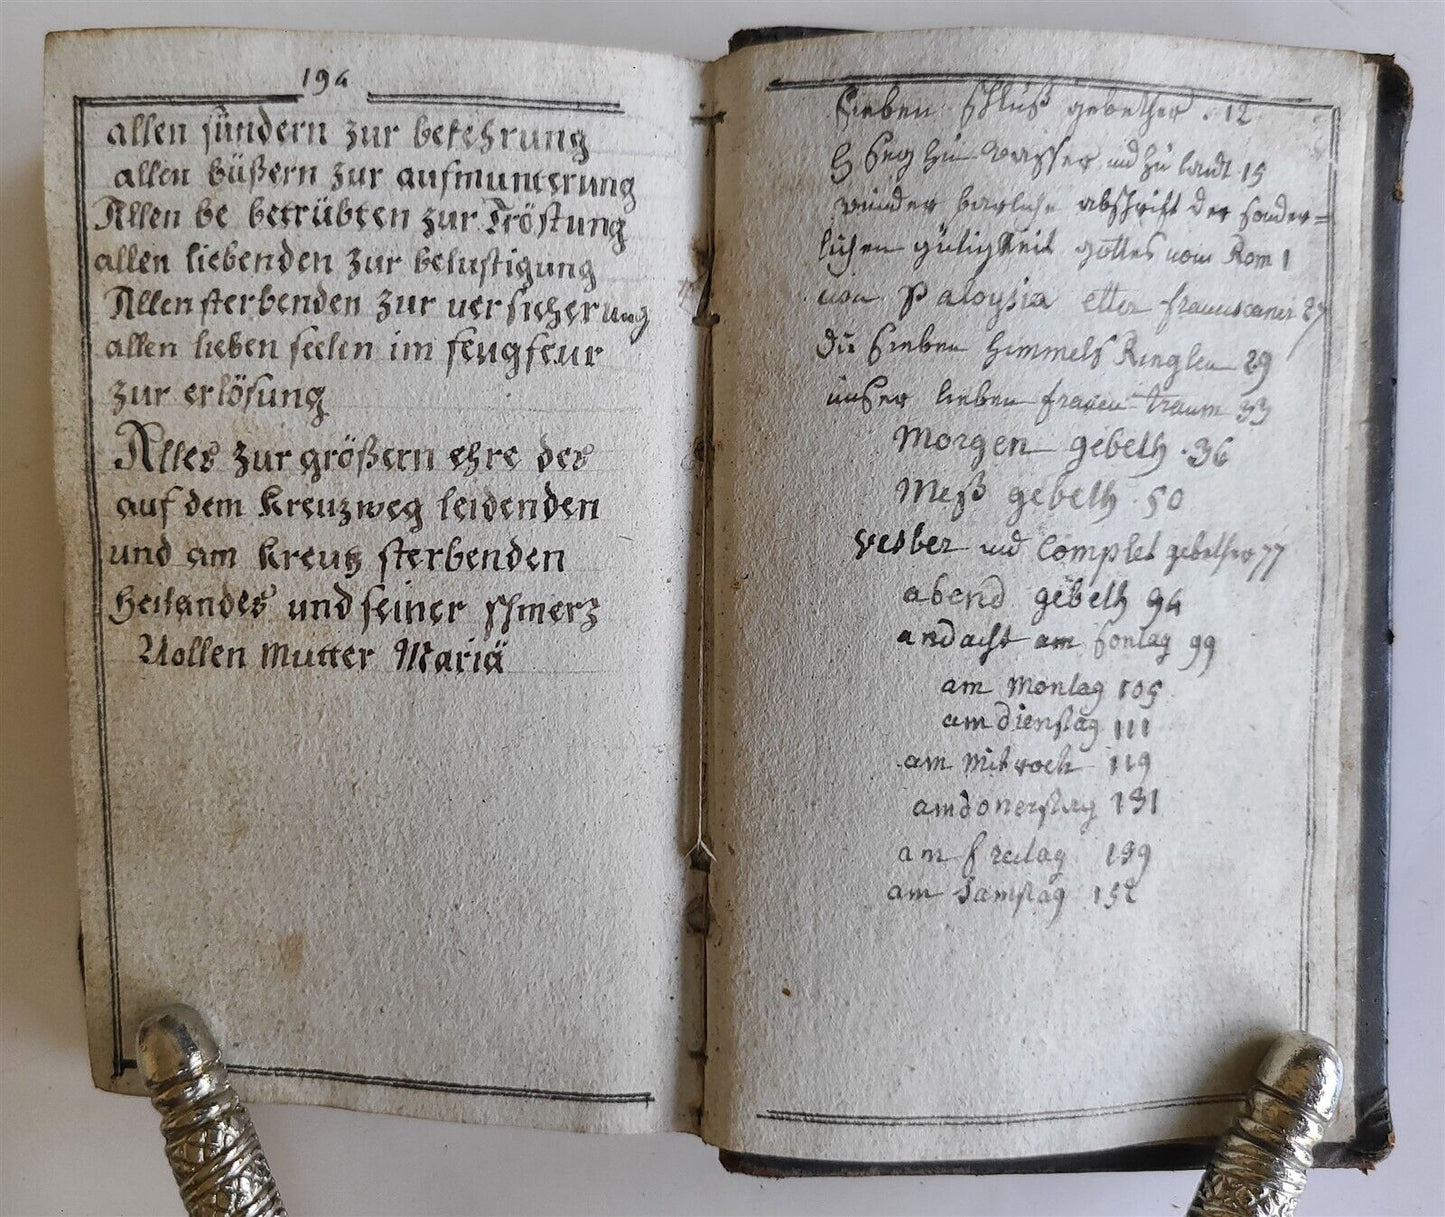 194
allen sündern zur bekehrung
allen büßern zur aufmunterung
Allen be betrübten zur Tröstung
allen liebenden zur belustigung
Allen sterbenden zur versicherung
allen lieben seelen im fengfeur
zur erlösung
Alles zur größern ehre des
auf dem Kreuzweg leidenden
und am Kreutz sterbenden
Heilandes und seiner schmerz
Vollen Mutter Mariä
Sieben schluß gebether . 12
Seg zu wasser und zu landt 15
wunder barliche abschrift der sonder=
lichen gütigkeit gottes von Rom
von P aloysia franciscaner 27
Die sieben himmels Ringlen 29
unser lieben frauen traum 33
Morgen gebeth . 36
Meß gebeth . 50
vesber und Complet gebether 77
abend gebeth 94
andacht am Sontag 99
am Montag 105
am dienstag 111
am Mitwoch 119
am donerstag 131
am freitag 139
am Samstag 152